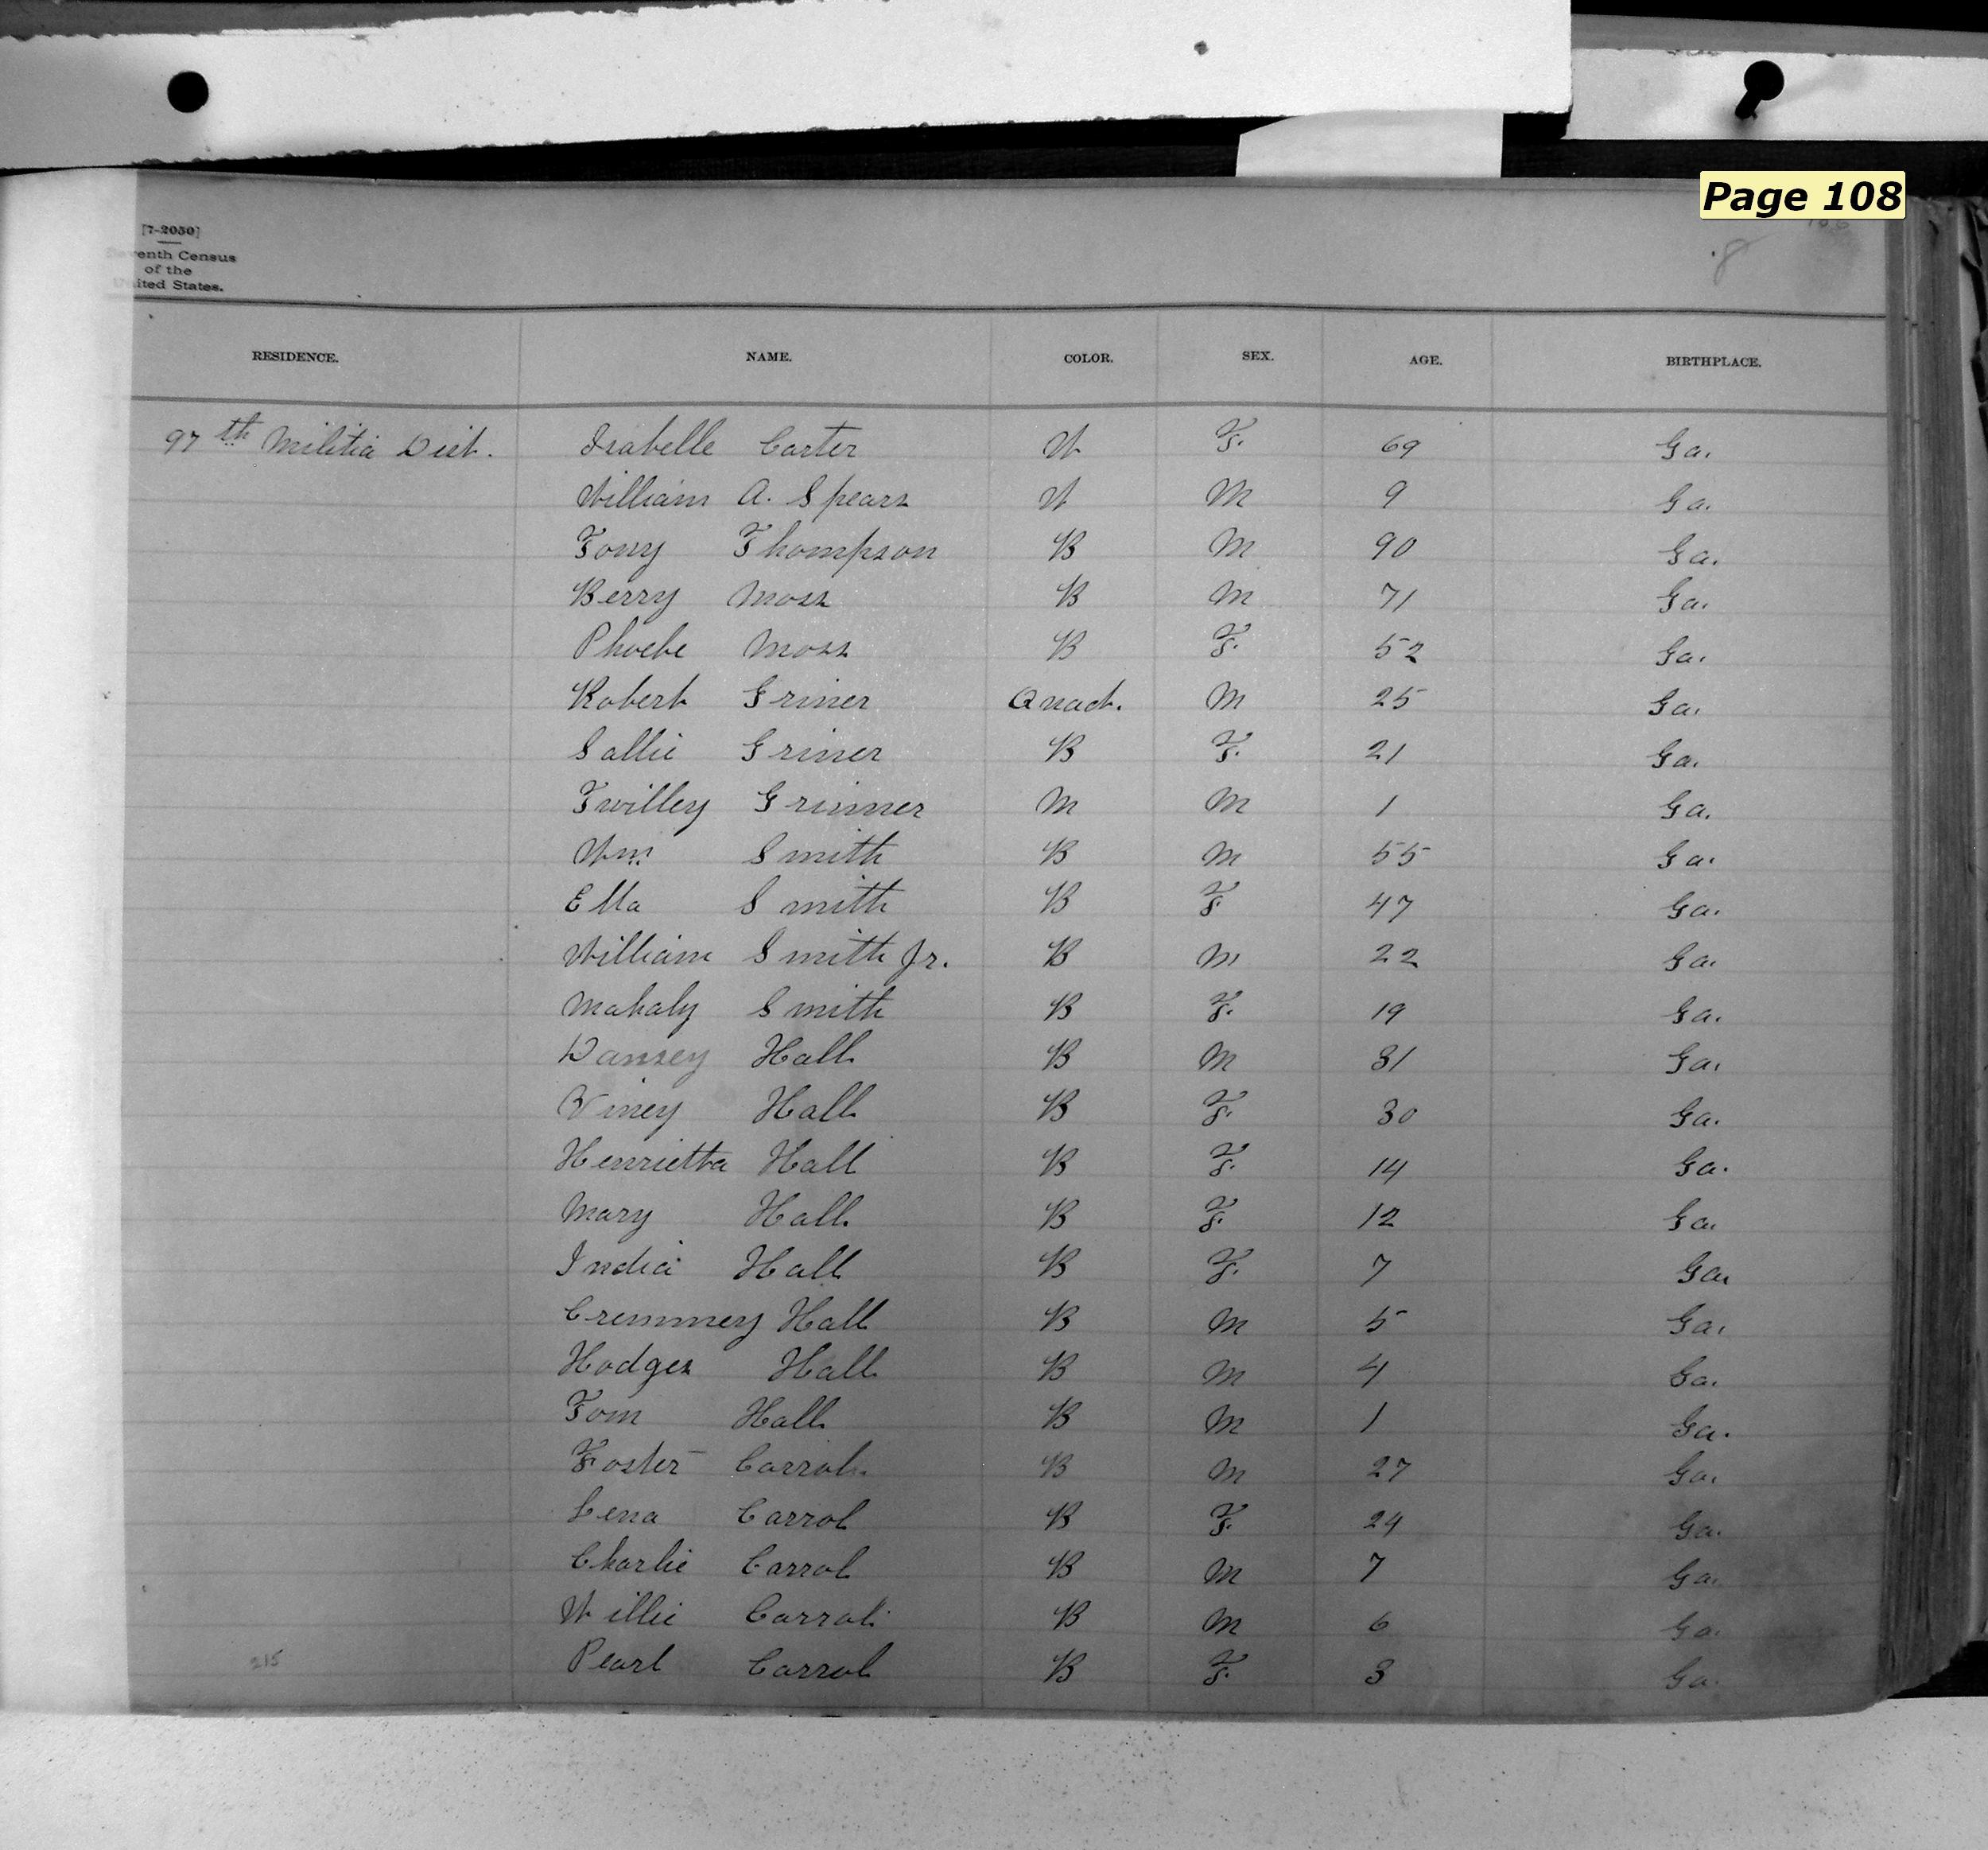 Page 108
[7-2050]
Seventh Census
of the
United States.
8
RESIDENCE. NAME. COLOR. SEX. AGE. BIRTHPLACE.
97th Militia Dist. Isabelle Carter W F. 69 Ga.
William A. Spears W M 9 Ga.
Tony Thompson B M 90 Ga.
Berry Moss B M 71 Ga.
Phoebe Moss B F. 52 Ga.
Robert Griner Quad. M 25 Ga.
Sallie Griner B F. 21 Ga.
Twilley Grinner M M 1 Ga.
Wm Smith B M 55 Ga.
Ella Smith B F 47 Ga.
William Smith Jr. B M 22 Ga.
Mahaly Smith B F. 19 Ga.
Dansey Hall B M 31 Ga.
Viney Hall B F. 30 Ga.
Henrietta Hall B F. 14 Ga.
Mary Hall B F. 12 Ga.
India Hall B F. 7 Ga.
Cremmey Hall B M 5 Ga.
Hodges Hall B M 4 Ga.
Tom Hall B M 1 Ga.
Foster Carrol B M 27 Ga.
Lena Carrol B F. 24 Ga.
Charlie Carrol B M 7 Ga.
Willie Carrol B M 6 Ga.
215 Pearl Carrol B F. 3 Ga.